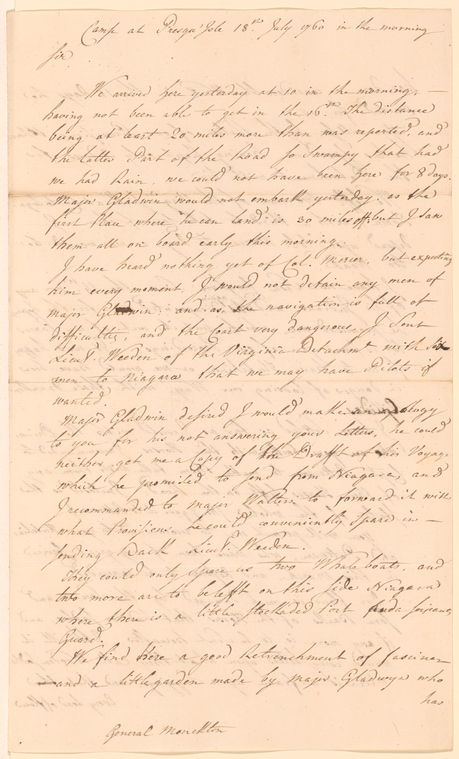 Camp at Presqu'Isle 18th July 1760 in the morning
Sir
We arrived here yesterday at 10 in the morning,
having not been able to get in the 16th. The distance
being at least 20 miles more than was reported, and
the latter Part of the Road so Swampy that had
we had Rain, we could not have been here for 8 days.
Major Gladwin would not embark yesterday, as the
first Place where he can land is 30 miles off, but I saw
them all on board early this morning.
I have heard nothing yet of Col. Mercer, but expecting
him every moment I would not detain any men of
major Gladwin; and as the navigation is full of
difficulties, and the Coast very dangerous, I Sent
Lieut. Weedon of the Virginia Detachmt. with
men to Niagara that we may have Pilots if
wanted.
Major Gladwin desired I would make an apology
to you for his not answering your Letters, he could
neither get me a Copy of the Drafft of his Voyage
which he promised to send from Niagara, and
I recommanded to major Walters to forward it with
what Provisions he could conveniently Spare in
sending Back Lieut. Weedon.
They could only spare us two Whale boats, and
two more are to be lefft on this Side Niagara
where there is a little Stockaded Fort
Guard.
We find here a good Retrenchment of fascines
and a little garden made by major Gladwyn who
has
General Monckton